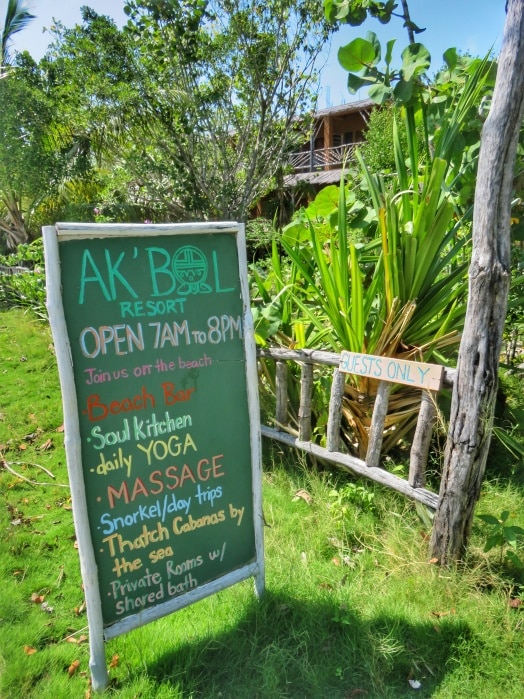 AK'BOL
RESORT
OPEN 7AM to 8PM
Join us on the beach
· Beach Bar
· Soul Kitchen
· daily YOGA
· MASSAGE
· Snorkel/day trips
· Thatch Cabanas by
the sea
· Private Rooms w/
shared bath
GUESTS ONLY